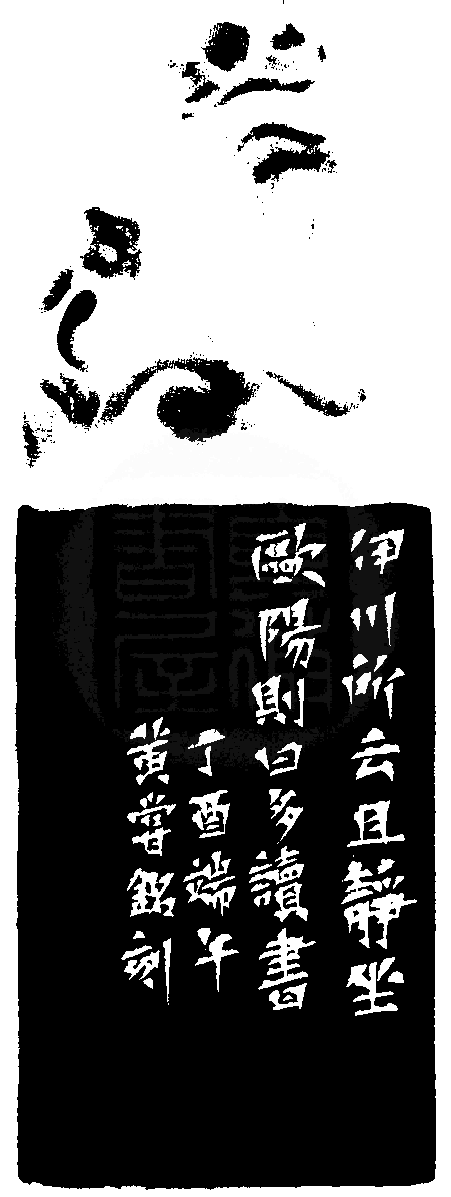 伊川所云且靜坐
歐陽則曰多讀書
丁酉端午
黃嘗銘刻